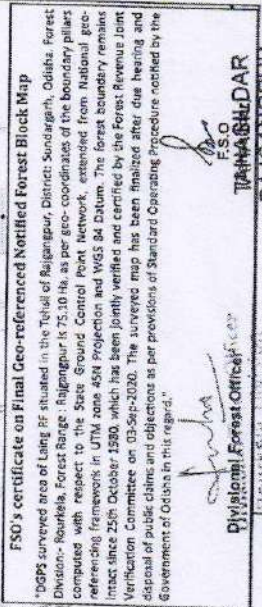 FSO's certificate on Final Geo-referenced Notified Forest Block Map
"DGPS surveyed area of Laing RF situated in the Tahsil of Rajgangpur, District: Sundargarh, Odisha. Forest
Division:- Rourkela, Forest Range : Rajgangpur is 75.10 Ha, as per geo- coordinates of the boundary pillars
computed with respect to the State Ground Control Point Network, extended from National geo-
referencing framework in UTM zone 45N Projection and WGS 84 Datum. The forest boundary remains
intact since 25th October 1980, which has been jointly verified and certified by the Forest Revenue Joint
Verification Committee on 03-Sep-2020. The surveyed map has been finalized after due hearing and
disposal of public claims and objections as per provisions of Standard Operating Procedure notified by the
Government of Odisha in this regard."
Divisional Forest Officer
F.S.O
TAHASILDAR